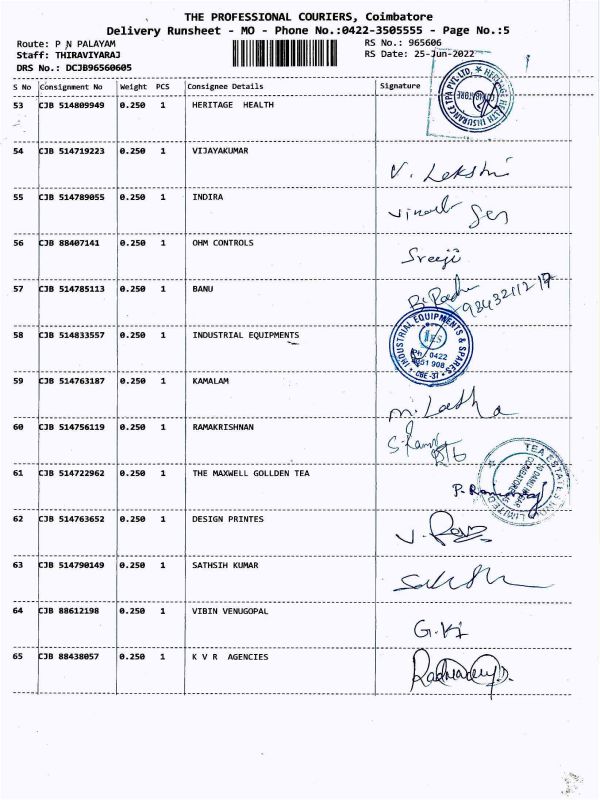 THE PROFESSIONAL COURIERS, Coimbatore
Delivery Runsheet - MO - Phone No.:0422-3505555 - Page No.:5
Route: P N PALAYAM
RS No.: 965606
Staff: THIRAVIYARAJ
RS Date: 25-Jun-2022
DRS No.: DCJB96560605
S No Consignment No Weight PCS Consignee Details Signature
53 CJB 514809949 0.250 1 HERITAGE HEALTH
HERITAGE HEALTH INSURANCE TPA PVT.LTD.
54 CJB 514719223 0.250 1 VIJAYAKUMAR
V. Lekshmi
55 CJB 514789055 0.250 1 INDIRA
56 CJB 88407141 0.250 1 OHM CONTROLS
Sreeji
57 CJB 514785113 0.250 1 BANU
58 CJB 514833557 0.250 1 INDUSTRIAL EQUIPMENTS
INDUSTRIAL EQUIPMENTS & SPARES
IES
0422
CBE-37
59 CJB 514763187 0.250 1 KAMALAM
M. Latha
60 CJB 514756119 0.250 1 RAMAKRISHNAN
61 CJB 514722962 0.250 1 THE MAXWELL GOLLDEN TEA
62 CJB 514763652 0.250 1 DESIGN PRINTES
63 CJB 514790149 0.250 1 SATHSIH KUMAR
64 CJB 88612198 0.250 1 VIBIN VENUGOPAL
65 CJB 88438057 0.250 1 K V R AGENCIES